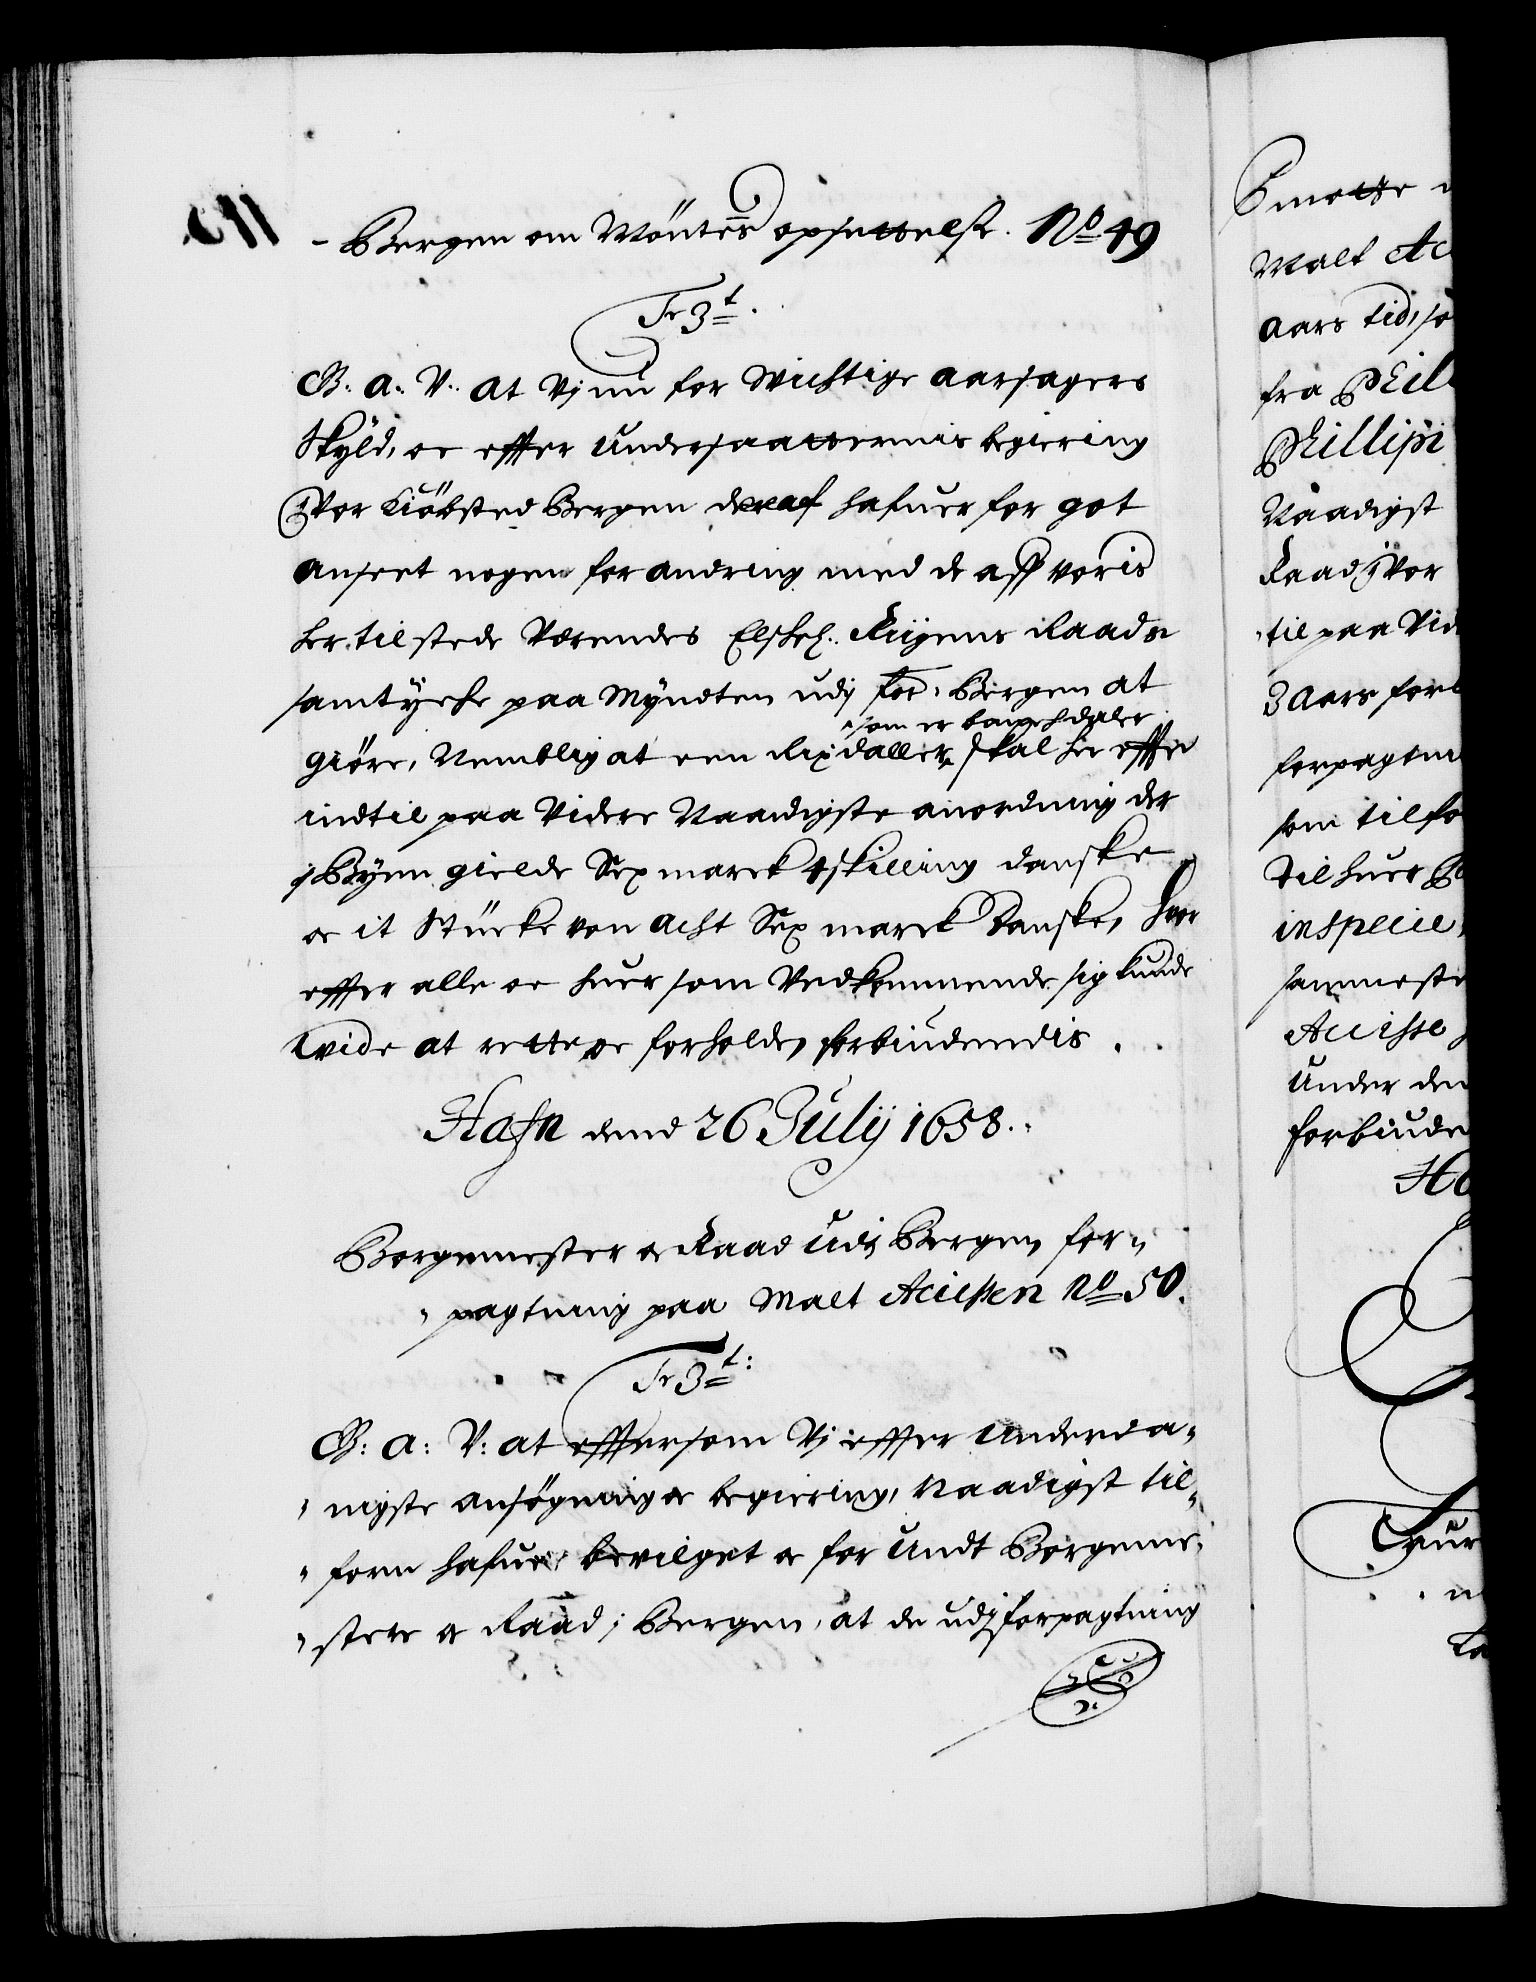 Bergen om Möntes opsettelse. No 49
Fr 3t.
G. a. V. at Vj nu for Wichtige aarsagers
skyld, oc effter Undersaatternis begiering
i Vor Kiöbsted Bergen deraf hafuer for got
anseet nogen forandring med de aff voris
her tilstede Værendes Elskel. Rigens Raads
samtyche paa Myndten udj for: Bergen at
som er banchdaler
giöre, Nemblig at een Rixdaller skal her effter
indtil paa Videre Naadigste anordning der
j Byen gielde Sex marck 4 skilling danske
oc it Stücke von acht Sex marck Danske, hvor
effter alle oc huer som Vedkommende sig kunde
wide at rette oc forholde, forbiudendis.
Hafn dend 26 Julij 1658.
Borgemester oc Raad Udj Bergen, for-
pagtning paa Malt Acissen No 50.
Fr 3t:
G: a: V: at effter som Vj effter Underda-
nigste ansögning oc begiering, Naadigst til-
forn hafuer bevilget oc for Undt Borgeme-
stere oc Raad i Bergen, at de udj forpagtning
Malt Ac
aars tid, so
fra Phil
Phillipi
Naadigst
Raad i Vor
til paa Vid
3 Aars forl
forpagtni
som tilfo
Til huer
in specie,
sammeste
Accisse
Under den
forbiude